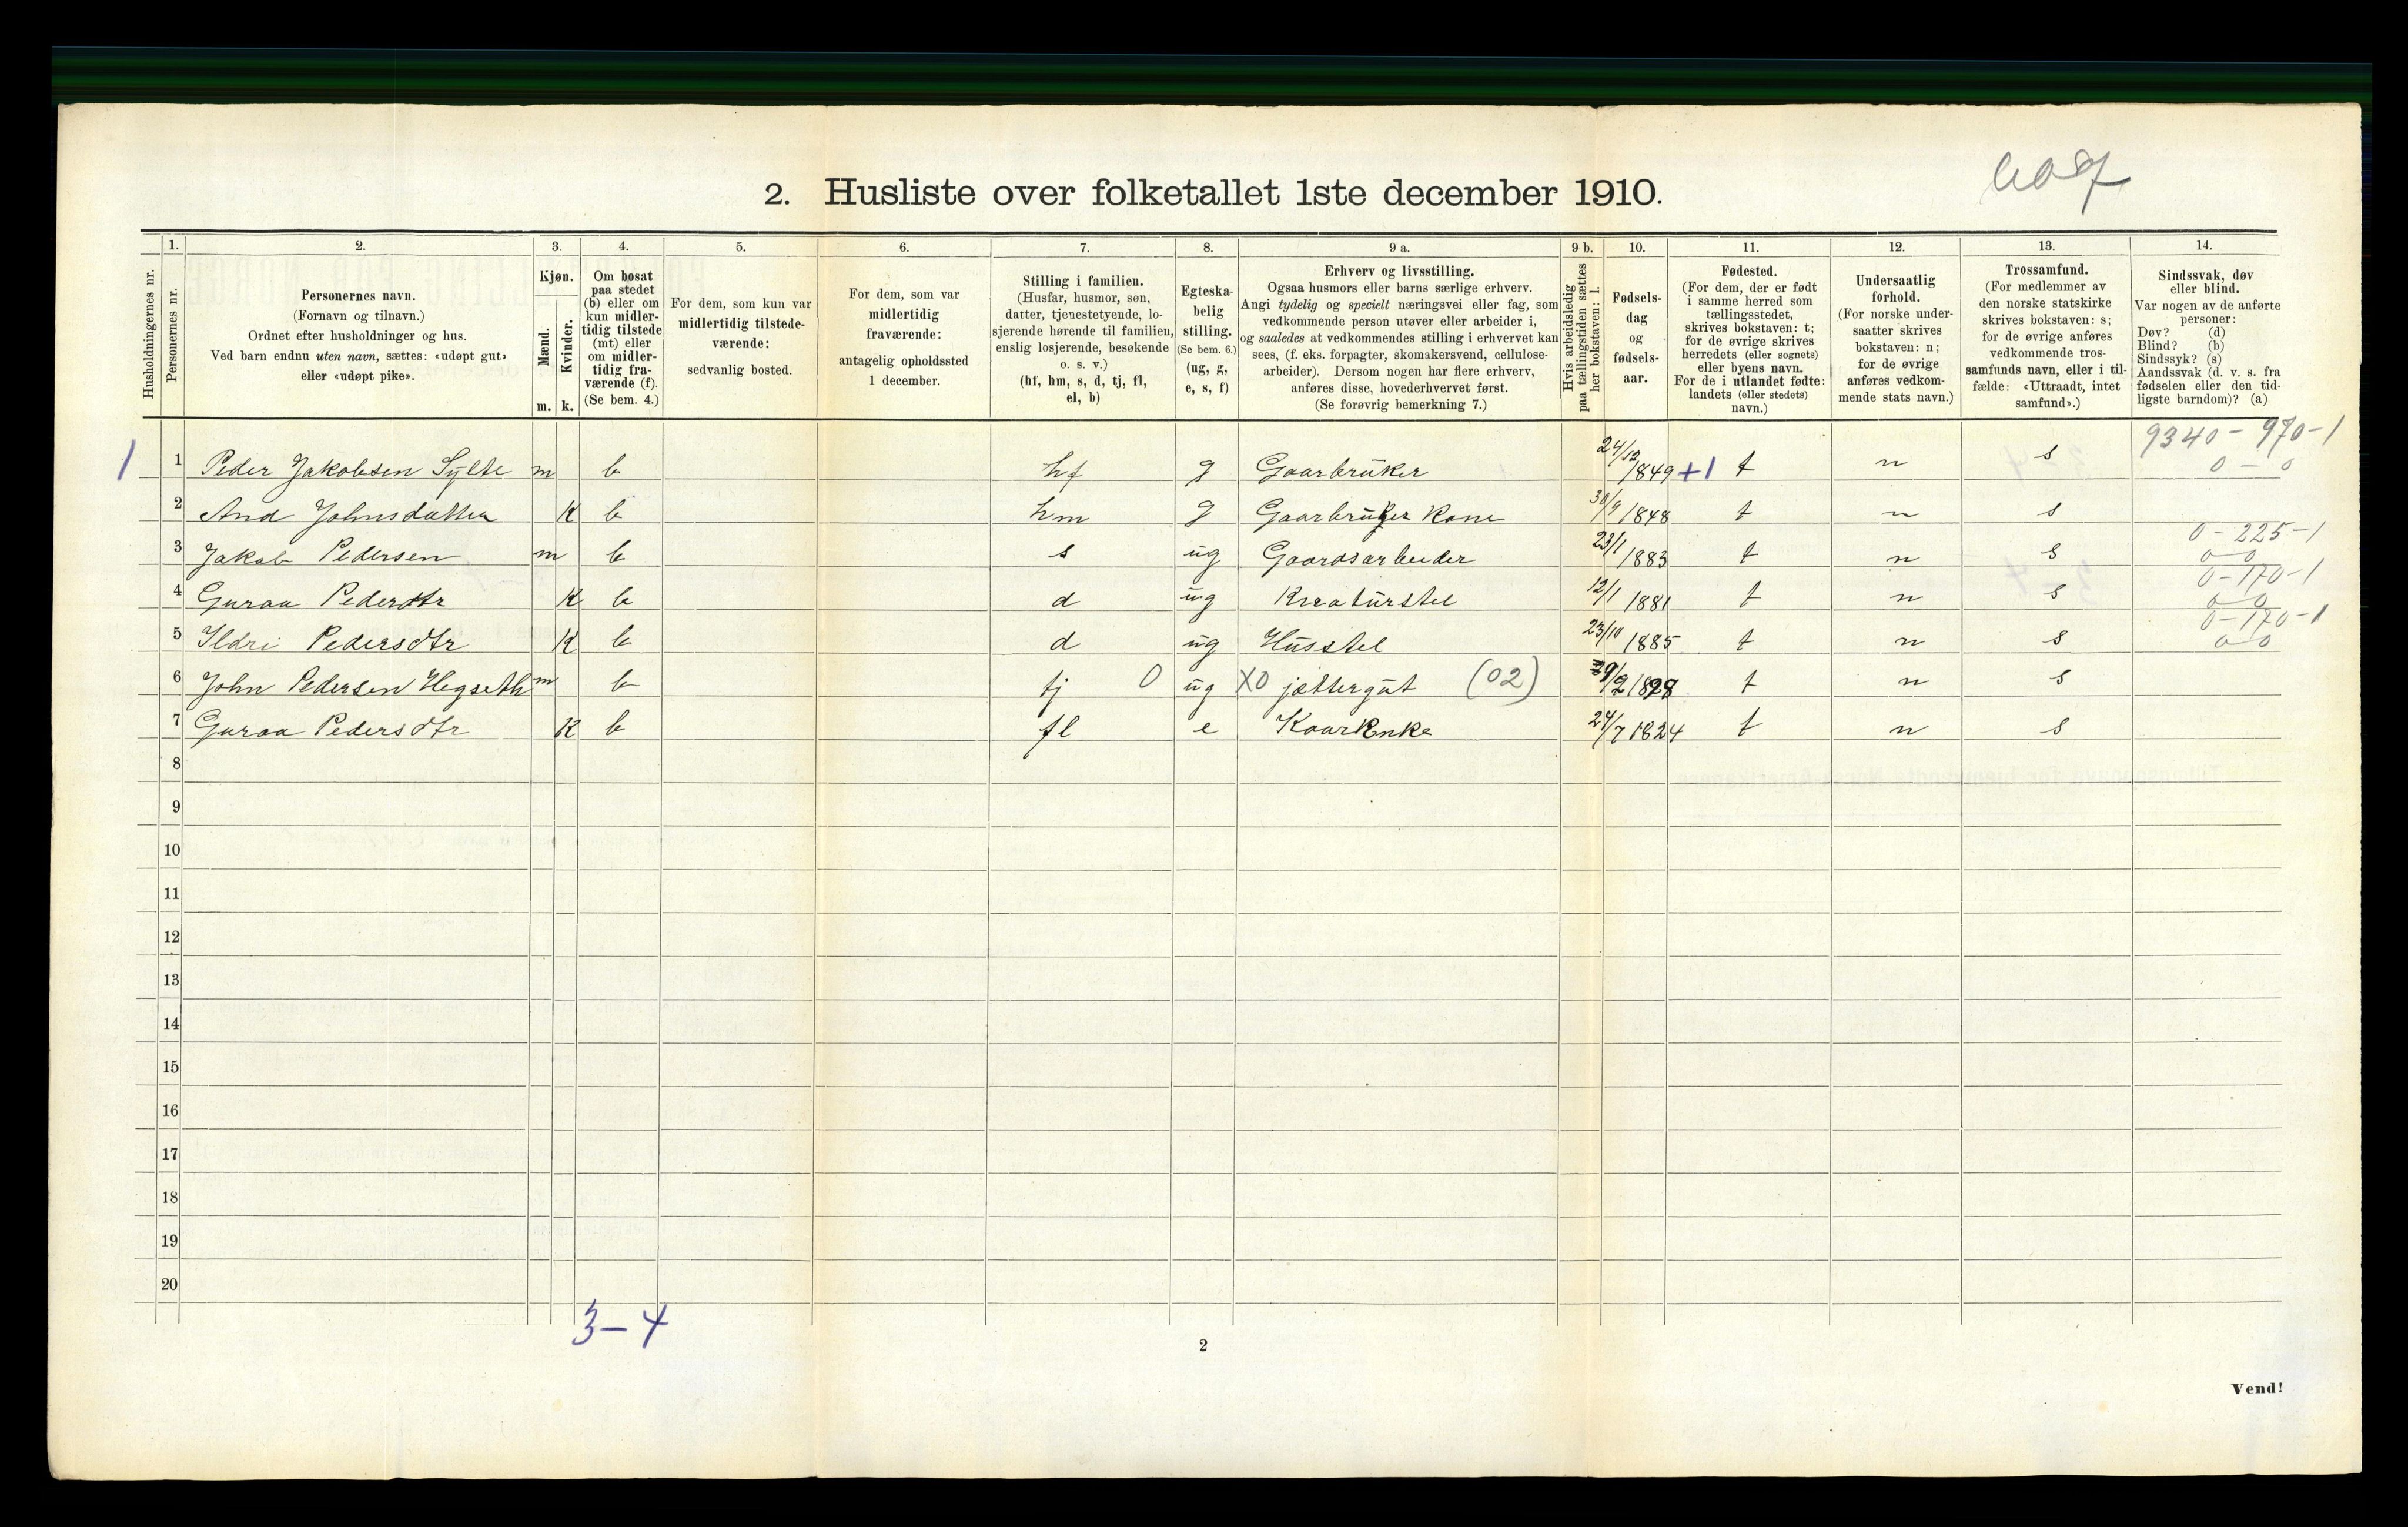 2. Husliste over folketallet 1ste december 1910.
1. 2. 3. 4. 5. 6. 7. 8. 9 a. 9 b. 10. 11. 12. 13. 14.
Husholdningernes nr.
Personernes nr.
Personernes navn.
(Fornavn og tilnavn.)
Ordnet efter husholdninger og hus.
Ved barn endnu uten navn, sættes: «udøpt gut»
eller «udøpt pike».
Kjøn.
Mænd.
Kvinder.
m. k.
Om bosat
paa stedet
(b) eller om
kun midler-
tidig tilstede
(mt) eller
om midler-
tidig fra-
værende (f).
(Se bem. 4.)
For dem, som kun var
midlertidig tilstede-
værende:
sedvanlig bosted.
For dem, som var
midlertidig
fraværende:
antagelig opholdssted
1 december.
Stilling i familien.
(Husfar, husmor, søn,
datter, tjenestetyende, lo-
sjerende hørende til familien,
enslig losjerende, besøkende
o. s. v.)
(hf, hm, s, d, tj, fl,
el, b)
Egteska-
belig
stilling.
(Se bem. 6.)
(ug, g,
e, s, f)
Erhverv og livsstilling.
Ogsaa husmors eller barns særlige erhverv.
Angi tydelig og specielt næringsvei eller fag, som
vedkommende person utøver eller arbeider i,
og saaledes at vedkommendes stilling i erhvervet kan
sees, (f. eks. forpagter, skomakersvend, cellulose-
arbeider). Dersom nogen har flere erhverv,
anføres disse, hovederhvervet først.
(Se forøvrig bemerkning 7.)
Hvis arbeidsledig
paa tællingstiden sættes
her bokstaven: l.
Fødsels-
dag
og
fødsels-
aar.
Fødested.
(For dem, der er født
i samme herred som
tællingsstedet,
skrives bokstaven: t;
for de øvrige skrives
herredets (eller sognets)
eller byens navn.
For de i utlandet fødte:
landets (eller stedets)
navn.)
Undersaatlig
forhold.
(For norske under-
saatter skrives
bokstaven: n;
for de øvrige
anføres vedkom-
mende stats navn.)
Trossamfund.
(For medlemmer av
den norske statskirke
skrives bokstaven: s;
for de øvrige anføres
vedkommende tros-
samfunds navn, eller i til-
fælde: «Uttraadt, intet
samfund».)
Sindssvak, døv
eller blind.
Var nogen av de anførte
personer:
Døv? (d)
Blind? (b)
Sindssyk? (s)
Aandssvak (d. v. s. fra
fødselen eller den tid-
ligste barndom)? (a)
9340 - 970-1
1 1 Peder Jakobsen Sylte m b hf g Gaarbruker 24/12 1849 +1 t n s 0 - 0
2 And Johnsdatter K b hm g Gaarbruker Kone 30/9 1848 t n s
0 - 225 - 1
3 Jakob Pedersen m b s ug Gaardsarbeider 23/1 1883 t n s 0 - 0
0 - 170 - 1
4 Guraa Pedersdtr K b d ug Kreaturstel 12/1 1881 t n s 0 - 0
0 - 170 - 1
5 Ildri Pedersdtr K b d ug Husstel 23/10 1885 t n s 0 - 0
6 John Pedersen Hegseth m b tj 0 ug X0 jættergut (02) 29/2 1898 t n s
7 Guraa Pedersdtr K b fl e Kaarenke 24/7 1824 t n s
8
9
10
11
12
13
14
15
16
17
18
19
20
3 - 4
2
Vend!